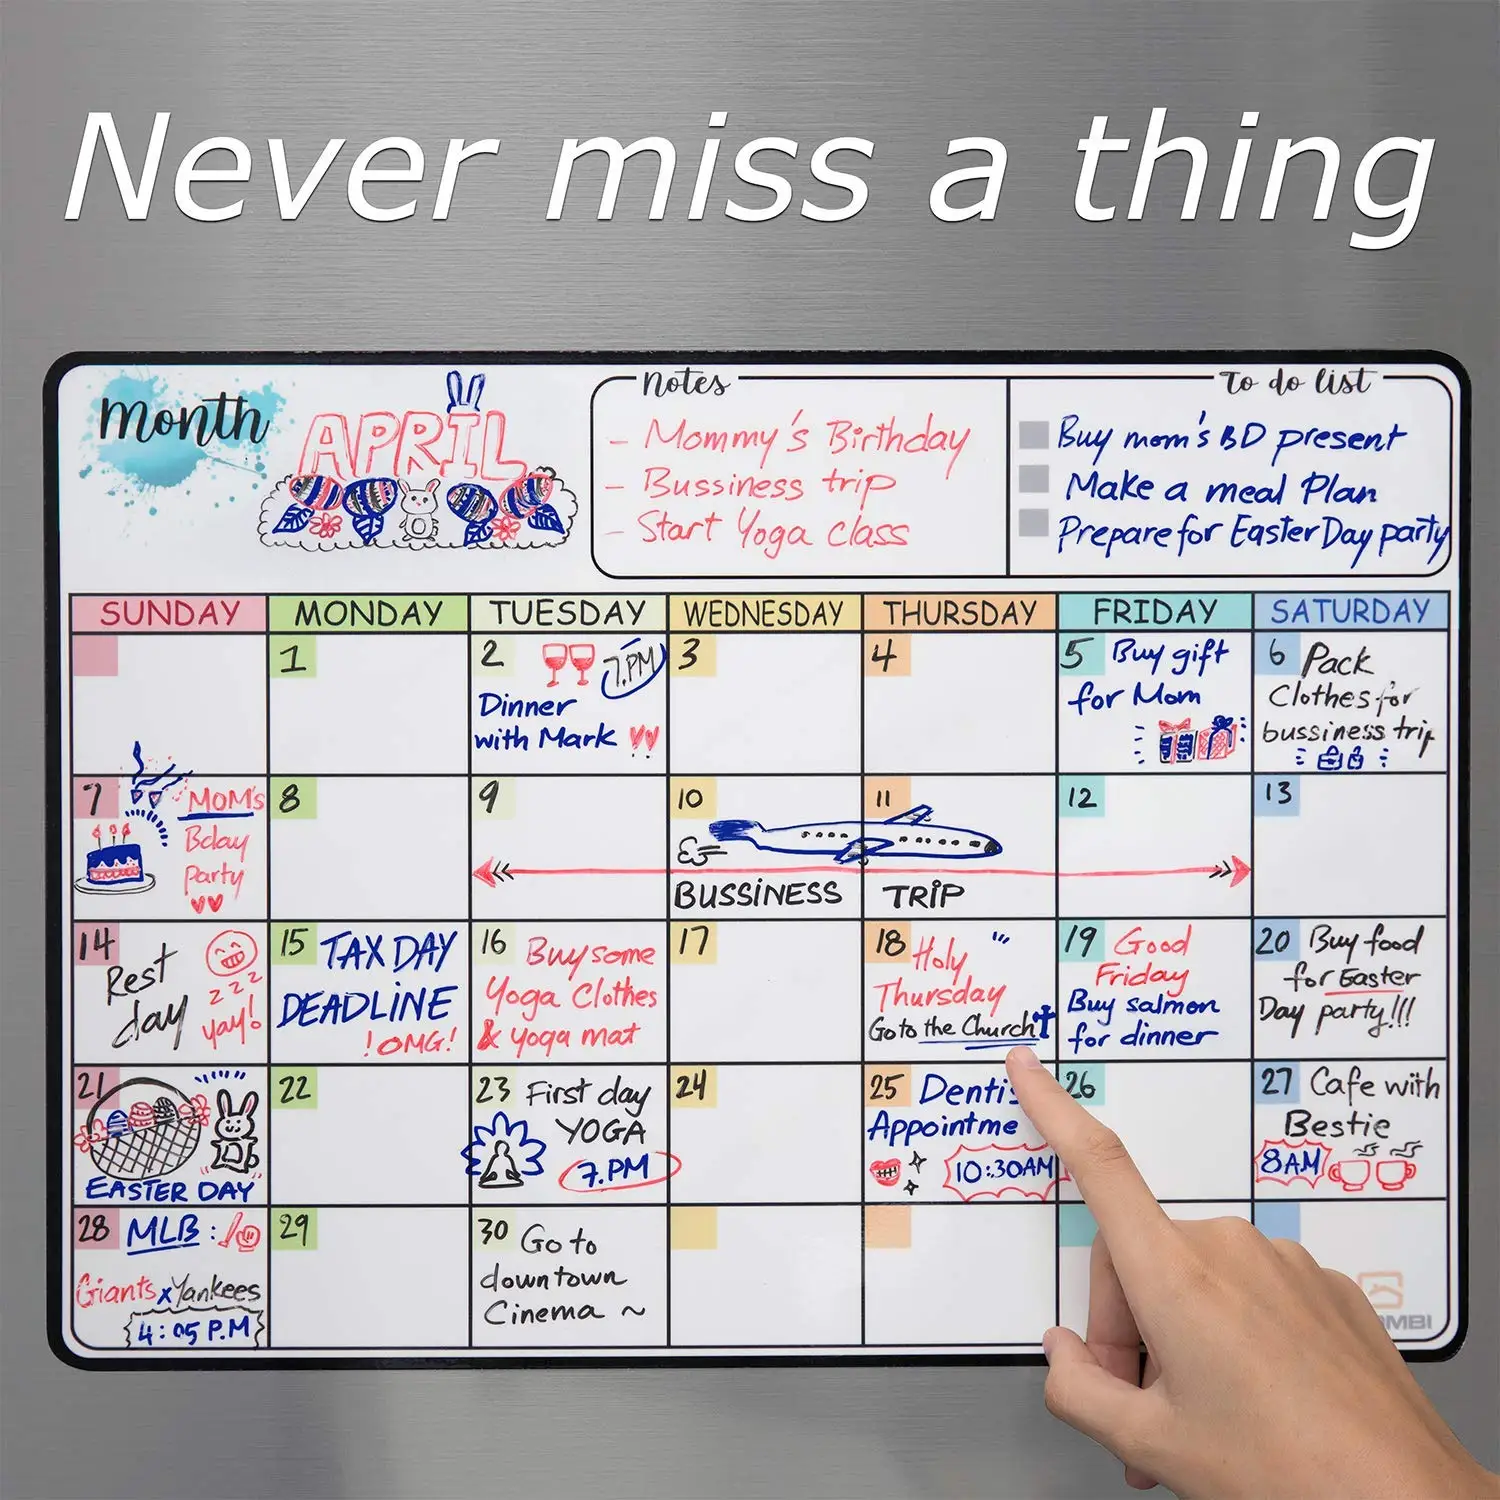 Never miss a thing
Month
APRIL
Notes
- Mommy's Birthday
- Bussiness trip
- Start Yoga class
To do list
Buy mom's BD present
Make a meal Plan
Prepare for Easter Day party
SUNDAY MONDAY TUESDAY WEDNESDAY THURSDAY FRIDAY SATURDAY
1
2
7.PM
Dinner
with Mark
3
4
5 Buy gift
for Mom
6 Pack
Clothes for
bussiness trip
7 MOM's
Bday
Party
8
9
10
11
BUSSINESS TRIP
12
13
14
Rest
day
zzz
yay!
15 TAX DAY
DEADLINE
!OMG!
16 Buy some
Yoga Clothes
& yoga mat
17
18 Holy
Thursday
Go to the Church
19 Good
Friday
Buy salmon
for dinner
20 Buy food
for Easter
Day party!!!
21
EASTER DAY
22
23 First day
YOGA
7.PM
24
25 Denti
Appointme
10:30AM
26
27 Cafe with
Bestie
8AM
28 MLB:
Giants x Yankees
4:05 P.M
29
30 Go to
downtown
Cinema ~
MBI